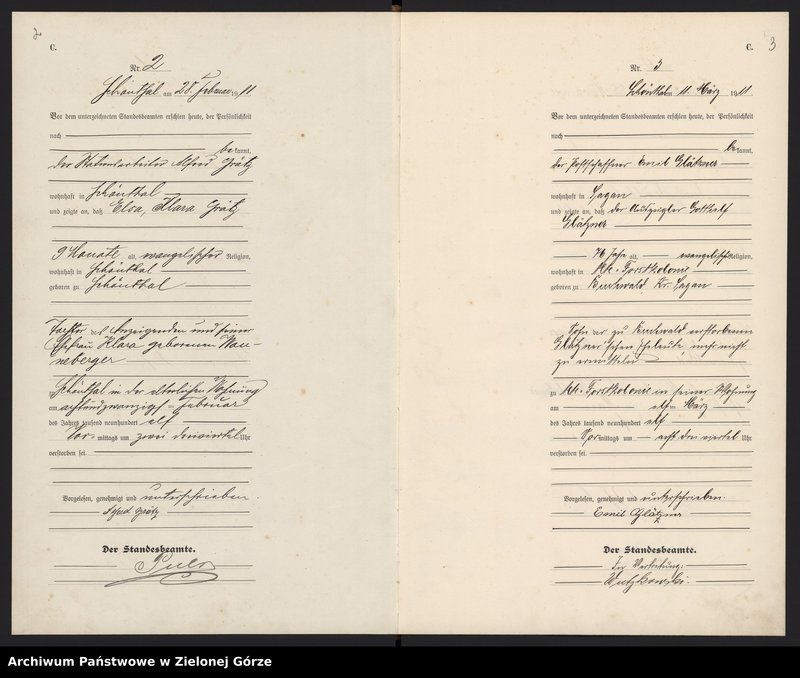 2
C.
Nr. 2
Schönthal am 28. Februar 1911
Vor dem unterzeichneten Standesbeamten erschien heute, der Persönlichkeit
nach
be kannt,
der Stationsarbeiter Alfred Grätz
wohnhaft in Schönthal
und zeigte an, daß Elsa, Klara Grätz
9 Monate alt, evangelischer Religion,
wohnhaft in Schönthal
geboren zu Schönthal
Tochter des Anzeigenden und seiner
Ehefrau Klara geborenen Wan-
neberger
Schönthal in der elterlichen Wohnung
am achtundzwanzigst Februar
des Jahres tausend neunhundert elf
Vor- mittags um zwei dreiviertel Uhr
verstorben sei.
Vorgelesen, genehmigt und unterschrieben.
Alfred Grätz
Der Standesbeamte.
C.
3
Nr. 3
Schönthal am 11. März 1911
Vor dem unterzeichneten Standesbeamten erschien heute, der Persönlichkeit
nach
be kannt,
der Postschaffner Emil Glätzner
wohnhaft in Sagan
und zeigte an, daß der Auszügler Gottlieb
Glätzner
76 Jahr alt, evangelisch Religion,
wohnhaft in Kh. Forstkolonie
geboren zu Buchwald Kr. Sagan
Sohn der zu Buchwald verstorbenen
Glätzner'schen Eheleute, mehr nicht
zu ermitteln
zu Kh. Forstkolonie in seiner Wohnung
am elften März
des Jahres tausend neunhundert elf
Vor mittags um acht drei viertel Uhr
verstorben sei.
Vorgelesen, genehmigt und unterschrieben.
Emil Glätzner
Der Standesbeamte.
In Vertretung:
Archiwum Państwowe w Zielonej Górze